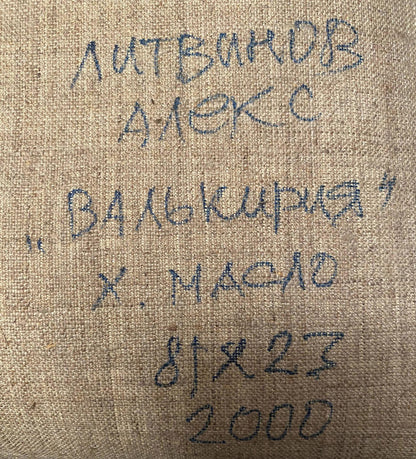 ЛИТВИНОВ
АЛЕКС
„ВАЛЬКИРИЯ"
Х. МАСЛО
81х23
2000